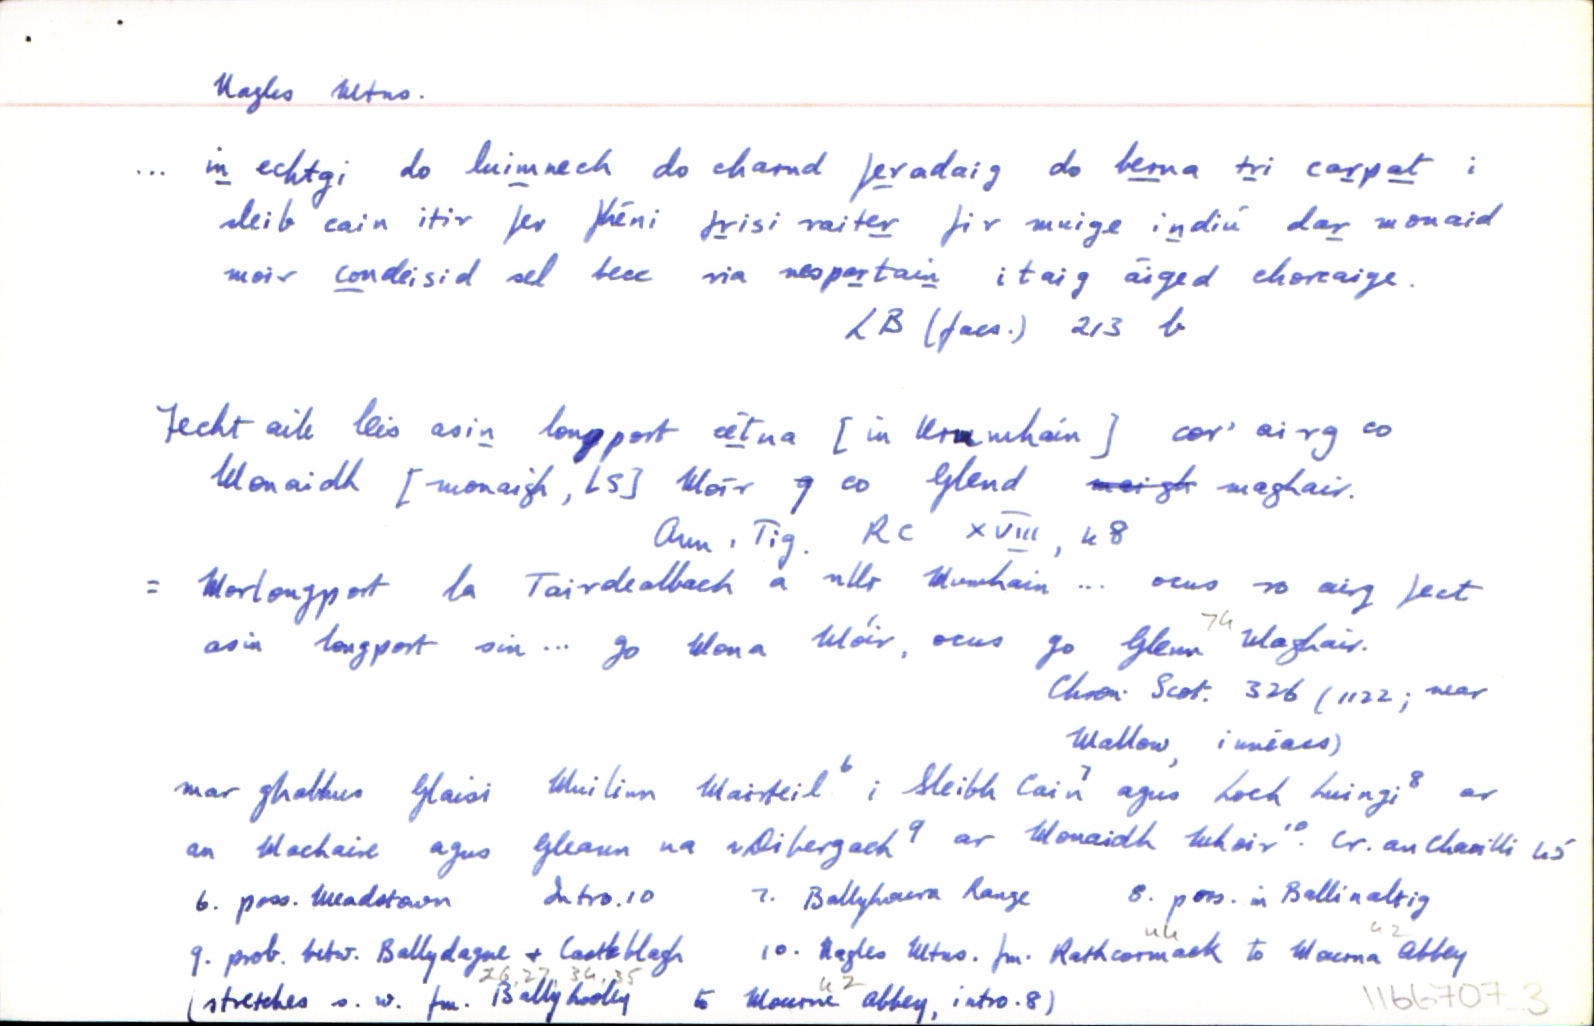 Nagles Mtns.
... in echtgi do luimnech do charnd feradaig do berna tri carpat i
sleib cain itir fer fhéni frisi raiter fir muige indiú dar monaid
moir condeisid sel becc ria nespartain i taig áiged chorcaige.
LB (facs.) 213 b
Fecht aile leis asin longport cétna [in Urmumhain] cor' airg co
Monaidh [monaigh, LS] Móir ⁊ co Glend maghair.
Ann. Tig. RC XVIII, 48
= Morlongport la Tairdealbach a nUr Mumhain ... ocus ro airg fect
asin longport sin ... go Mona Móir, ocus go Glenn Maghair.
74
Chron. Scot. 326 (1122; near
Mallow, innéacs)
mar ghabhus Glaisi Muilinn Mairteil⁶ i Sleibh Cain⁷ agus Loch Luingi⁸ ar
an Machaire agus Gleann na nDibergach⁹ ar Monaidh Mhoir¹⁰. Cr. an Chaoilli 45
6. poss. Meadstown Intro. 10 7. Ballyhoura Range 8. poss. in Ballinaltig
9. prob. betw. Ballydague + Castleblagh 10. Nagles Mtns. fm. Rathcormack to Mourna Abbey
44 42
26, 27, 34, 35 42
(stretches s.w. fm. Ballyhooley to Mourne Abbey, intro. 8)
1166707_3